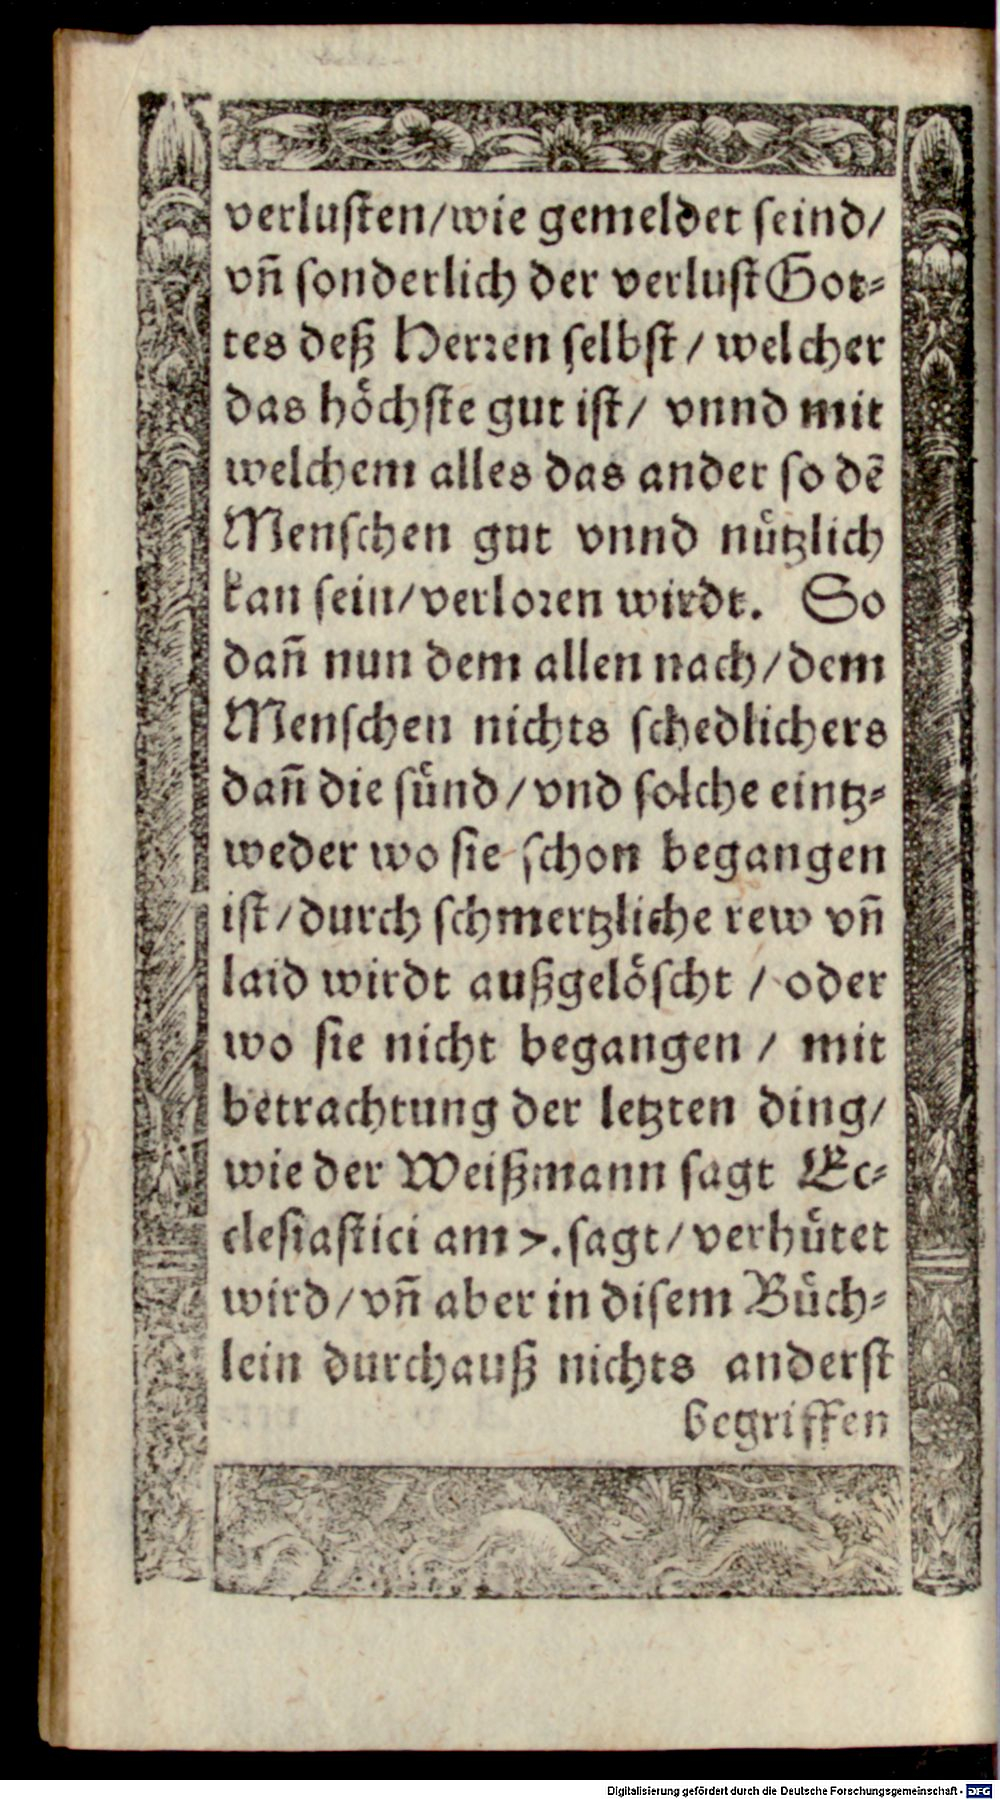 verluſten/wie gemeldet ſeind/
vñ ſonderlich der verluſt Got⸗
tes deß Herꝛen ſelbſt/ welcher
das hoͤchſte gut iſt/ vnnd mit
welchem alles das ander ſo dē
Menſchen gut vnnd nuͤtzlich
kan ſein/verloꝛen wirdt. So
dañ nun dem allen nach/dem
Menſchen nichts ſchedlichers
dañ die ſuͤnd/vnd ſolche eintz⸗
weder wo ſie ſchon begangen
iſt/durch ſchmertzliche rew vñ
laid wirdt außgeloͤſcht / oder
wo ſie nicht begangen / mit
betrachtung der letzten ding/
wie der Weißmann ſagt Ec⸗
cleſiaſtici am 7. ſagt/verhuͤtet
wird/vñ aber in diſem Buͤch⸗
lein durchauß nichts anderſt
begriffen
Digitalisierung gefördert durch die Deutsche Forschungsgemeinschaft - DFG